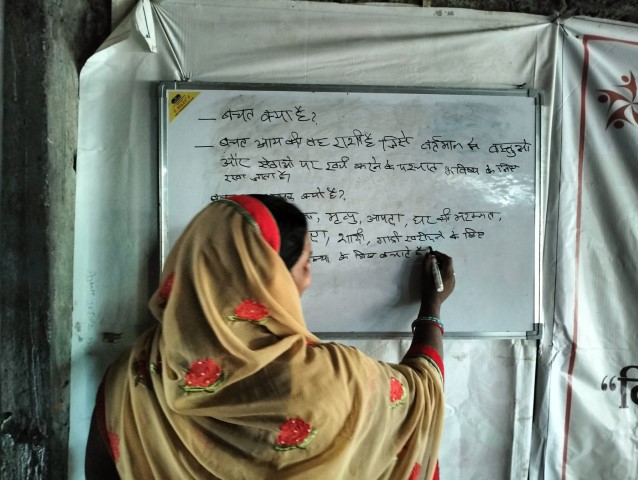 — बचत क्या है?
— बचत आय की वह राशी है जिसे वर्तमान में वस्तुओ
और सेवाओ पर खर्च करने के पश्चात भविष्य के लिए
रखा जाता है।
क्यो है?
मृत्यु, आपदा, घर की मरम्मत,
शादी, गाडी खरीदने के लिए
के लिए बचाते है।